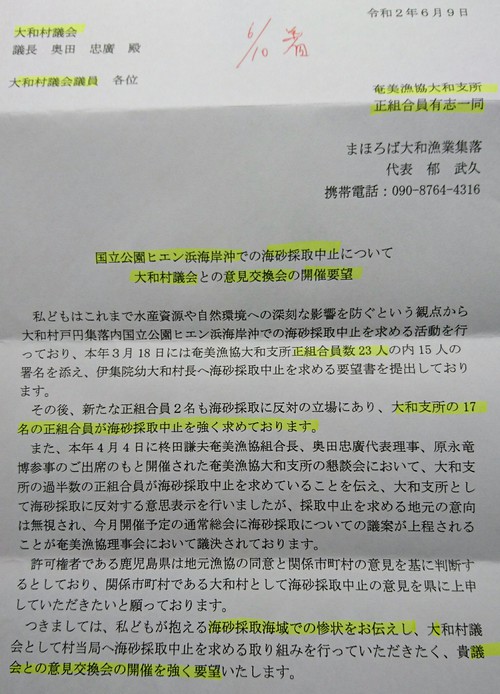 令和２年６月９日
大和村議会
議長　奥田　忠廣　殿
6/10 着
大和村議会議員　各位
奄美漁協大和支所
正組合員有志一同
まほろば大和漁業集落
代表　郁　武久
携帯電話：090-8764-4316
国立公園ヒエン浜海岸沖での海砂採取中止について
大和村議会との意見交換会の開催要望
私どもはこれまで水産資源や自然環境への深刻な影響を防ぐという観点から
大和村戸円集落内国立公園ヒエン浜海岸沖での海砂採取中止を求める活動を行
っており、本年３月18日には奄美漁協大和支所正組合員数23人の内15人の
署名を添え、伊集院幼大和村長へ海砂採取中止を求める要望書を提出しており
ます。
その後、新たな正組合員２名も海砂採取に反対の立場にあり、大和支所の17
名の正組合員が海砂採取中止を強く求めております。
また、本年４月４日に柊田謙夫奄美漁協組合長、奥田忠廣代表理事、原永竜
博参事のご出席のもと開催された奄美漁協大和支所の懇談会において、大和支
所の過半数の正組合員が海砂採取中止を求めていることを伝え、大和支所とし
て海砂採取に反対する意思表示を行いましたが、採取中止を求める地元の意向
は無視され、今月開催予定の通常総会に海砂採取についての議案が上程される
ことが奄美漁協理事会において議決されております。
許可権者である鹿児島県は地元漁協の同意と関係市町村の意見を基に判断す
るとしており、関係市町村である大和村として海砂採取中止の意見を県に上申
していただきたいと願っております。
つきましては、私どもが抱える海砂採取海域での惨状をお伝えし、大和村議
会として村当局へ海砂採取中止を求める取り組みを行っていただきたく、貴議
会との意見交換会の開催を強く要望いたします。